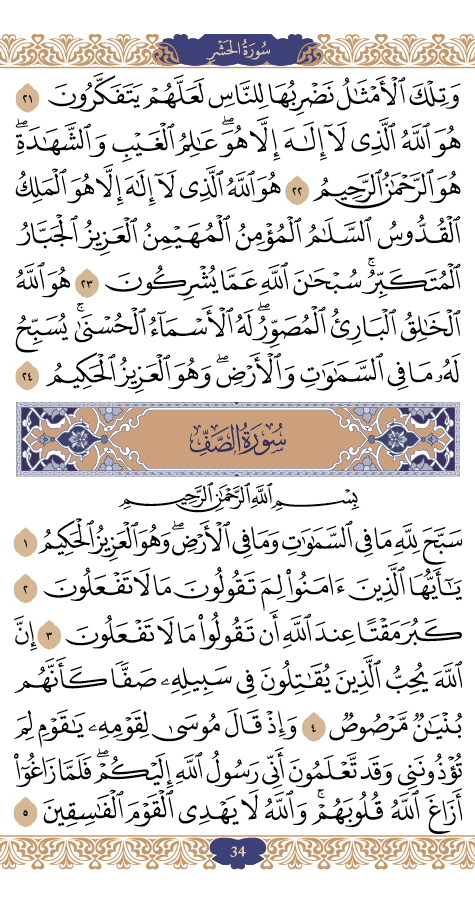 سُورَةُ الحَشْرِ
وَتِلْكَ ٱلْأَمْثَٰلُ نَضْرِبُهَا لِلنَّاسِ لَعَلَّهُمْ يَتَفَكَّرُونَ ٢١
هُوَ ٱللَّهُ ٱلَّذِى لَآ إِلَٰهَ إِلَّا هُوَۖ عَٰلِمُ ٱلْغَيْبِ وَٱلشَّهَٰدَةِۖ
هُوَ ٱلرَّحْمَٰنُ ٱلرَّحِيمُ ٢٢ هُوَ ٱللَّهُ ٱلَّذِى لَآ إِلَٰهَ إِلَّا هُوَ ٱلْمَلِكُ
ٱلْقُدُّوسُ ٱلسَّلَٰمُ ٱلْمُؤْمِنُ ٱلْمُهَيْمِنُ ٱلْعَزِيزُ ٱلْجَبَّارُ
ٱلْمُتَكَبِّرُۚ سُبْحَٰنَ ٱللَّهِ عَمَّا يُشْرِكُونَ ٢٣ هُوَ ٱللَّهُ
ٱلْخَٰلِقُ ٱلْبَارِئُ ٱلْمُصَوِّرُۖ لَهُ ٱلْأَسْمَآءُ ٱلْحُسْنَىٰۚ يُسَبِّحُ
لَهُۥ مَا فِى ٱلسَّمَٰوَٰتِ وَٱلْأَرْضِۖ وَهُوَ ٱلْعَزِيزُ ٱلْحَكِيمُ ٢٤
سُورَةُ الصَّفِّ
بِسْمِ ٱللَّهِ ٱلرَّحْمَٰنِ ٱلرَّحِيمِ
سَبَّحَ لِلَّهِ مَا فِى ٱلسَّمَٰوَٰتِ وَمَا فِى ٱلْأَرْضِۖ وَهُوَ ٱلْعَزِيزُ ٱلْحَكِيمُ ١
يَٰٓأَيُّهَا ٱلَّذِينَ ءَامَنُوا۟ لِمَ تَقُولُونَ مَا لَا تَفْعَلُونَ ٢
كَبُرَ مَقْتًا عِندَ ٱللَّهِ أَن تَقُولُوا۟ مَا لَا تَفْعَلُونَ ٣ إِنَّ
ٱللَّهَ يُحِبُّ ٱلَّذِينَ يُقَٰتِلُونَ فِى سَبِيلِهِۦ صَفًّا كَأَنَّهُم
بُنْيَٰنٌ مَّرْصُوصٌ ٤ وَإِذْ قَالَ مُوسَىٰ لِقَوْمِهِۦ يَٰقَوْمِ لِمَ
تُؤْذُونَنِى وَقَد تَّعْلَمُونَ أَنِّى رَسُولُ ٱللَّهِ إِلَيْكُمْۖ فَلَمَّا زَاغُوٓا۟
أَزَاغَ ٱللَّهُ قُلُوبَهُمْۚ وَٱللَّهُ لَا يَهْدِى ٱلْقَوْمَ ٱلْفَٰسِقِينَ ٥
34